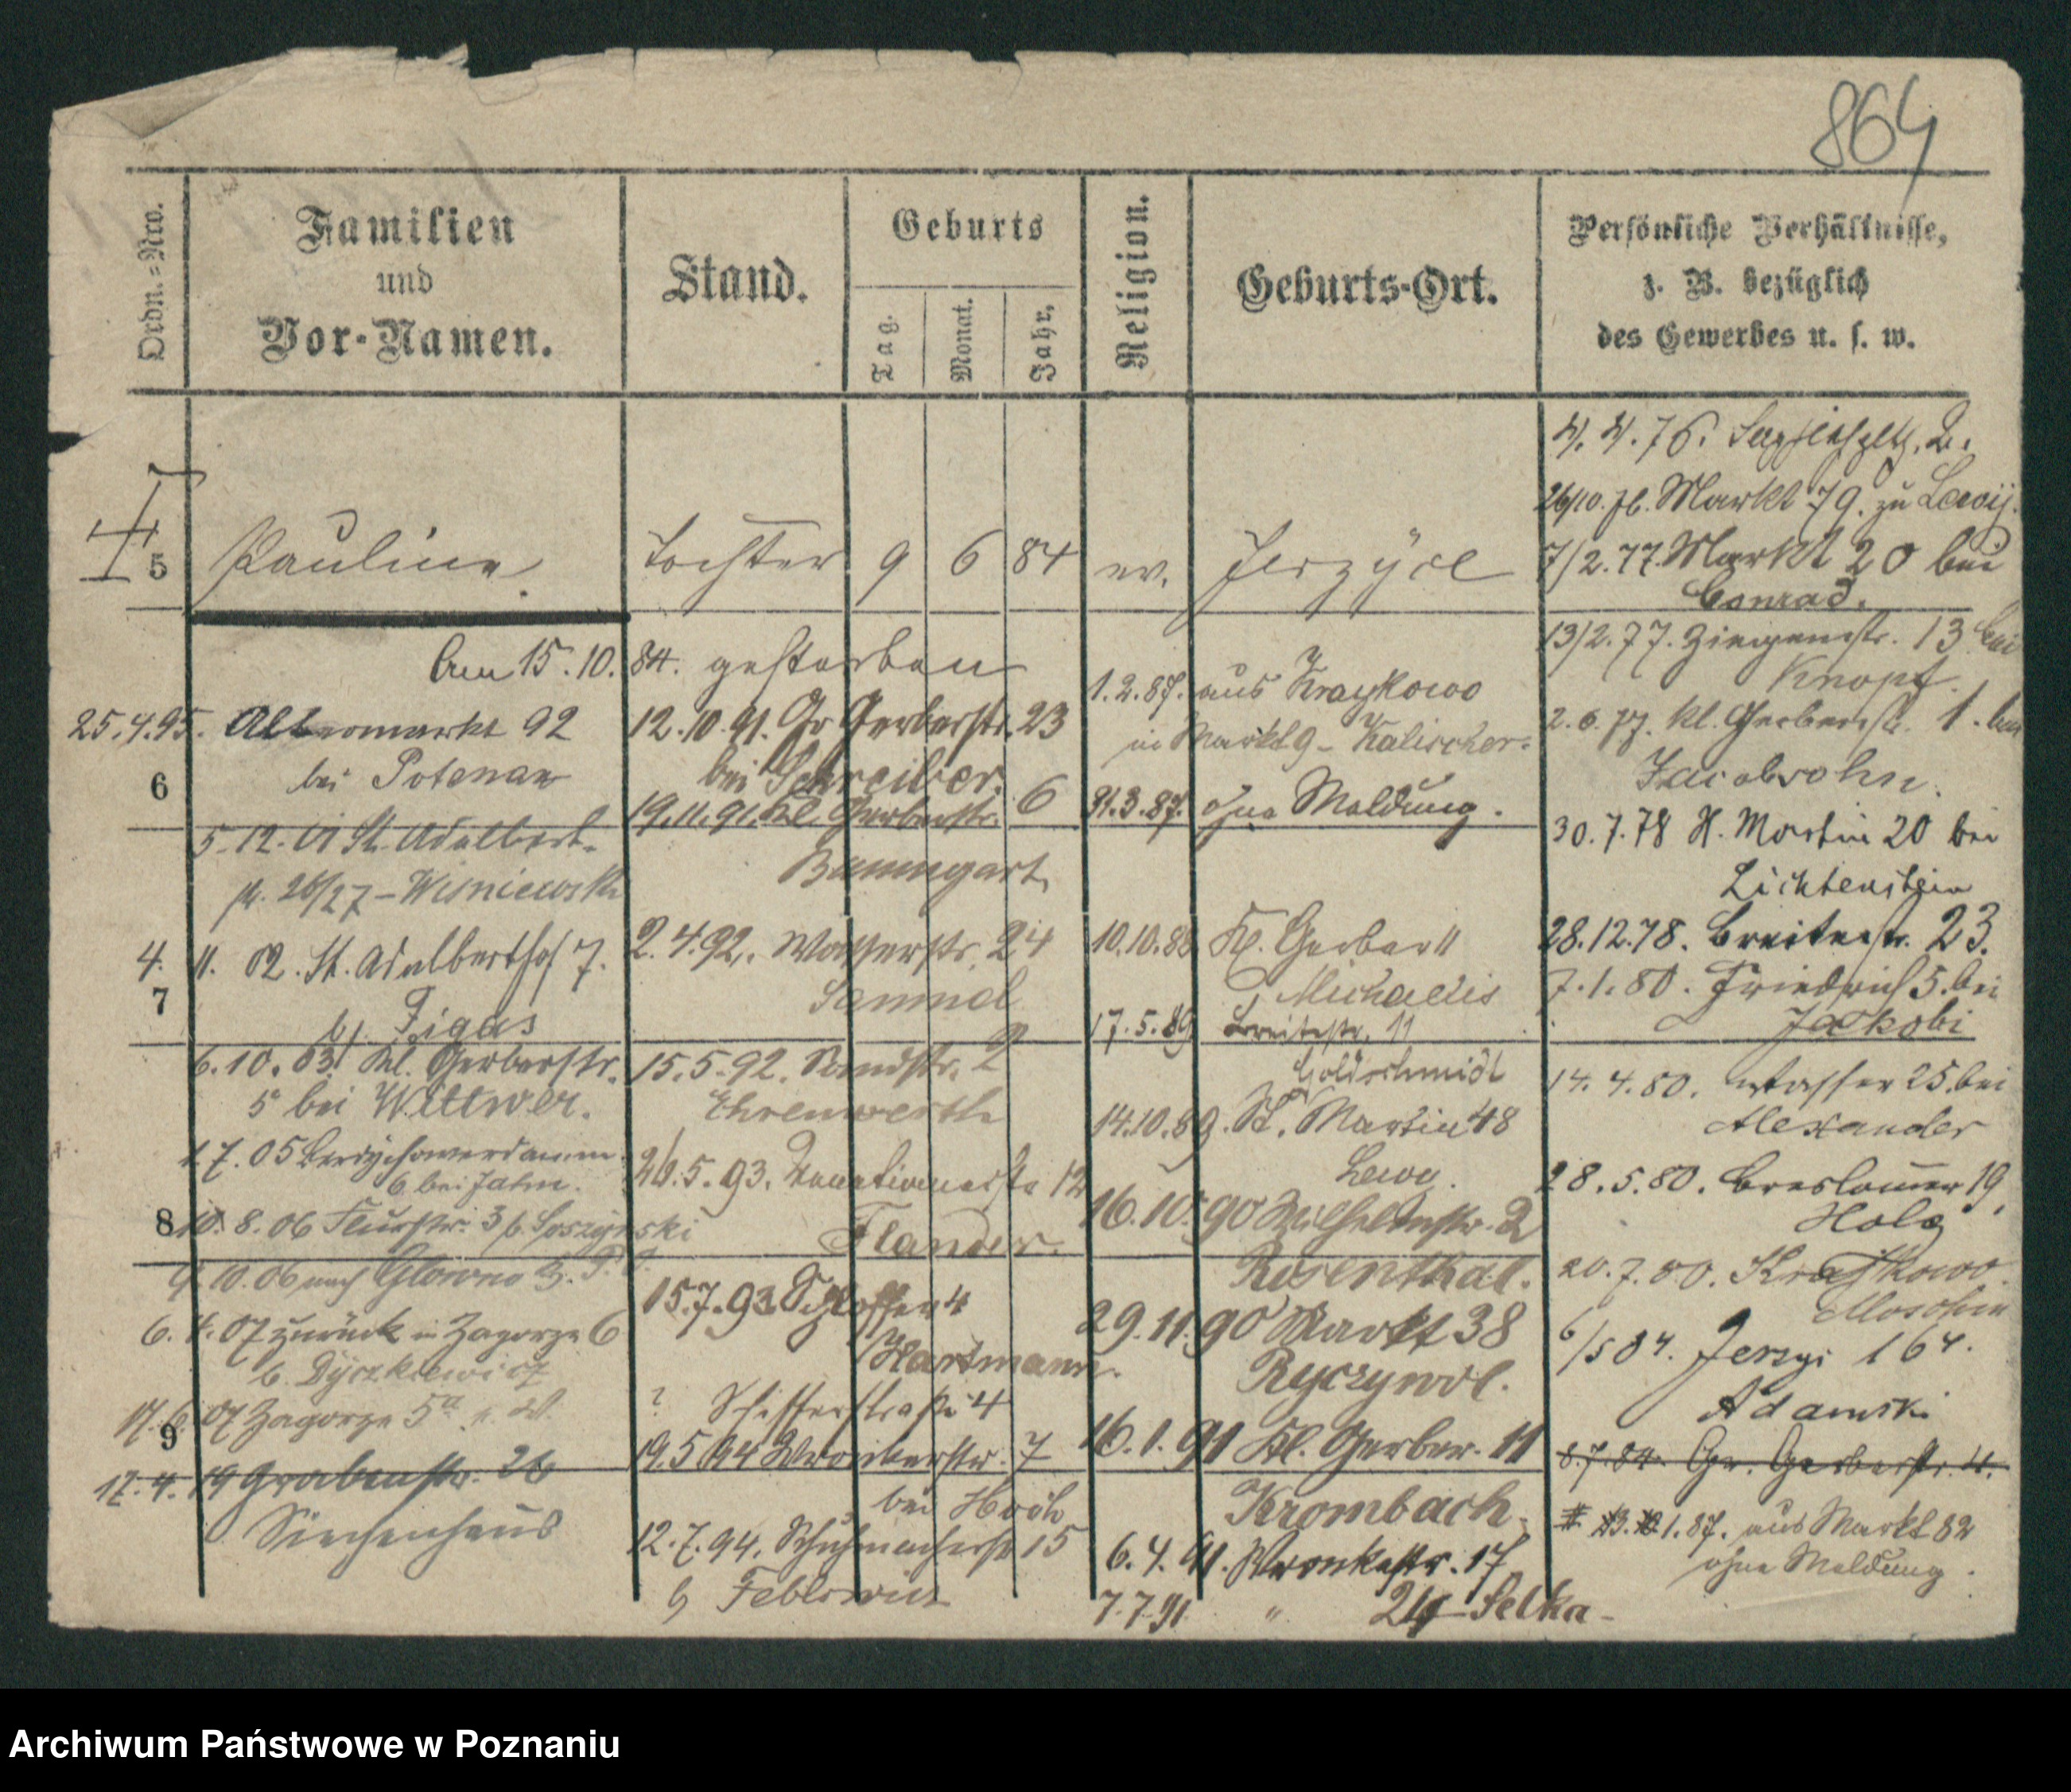 864
Ordn.=Nro.
Familien
und
Vor-Namen.
Stand.
Geburts
Tag.
Monat.
Jahr.
Religion.
Geburts-Ort.
Persönliche Verhältnisse,
z. B. bezüglich
des Gewerbes u. s. w.
5 Pauline Tochter 9 6 84 ev. Jerzyce
Am 15.10.84. gestorben
25.4.95. Altermarkt 92
bei
6
5.12.01 St. Adalbert-
26/27 - Wisniewski
4. 11. 02. St. Adalberthof 7.
7
b/. Figas
6.10.03. Kl. Gerberstr.
5 bei Wittwer.
1.7.05 Berdychowerdamm
6 bei Jahn.
8
10. 8. 06 Flurstr. 3 b.
9.10.06 nach Glowno
6. 4. 07 zurück in Zagorze 6
b. Dyszkiewicz
17.6.07 Zagorze 5a
9
17. 4. 19 Grabenstr. 26
Siechenhaus
12.10.91. Gr Gerberstr. 23
bei Schreiber.
19.11.91. Kl. Gerberstr. 6
Baumgart
2. 4. 92. Wasserstr. 24
Samuel
15.5.92. Sandstr. 2
Ehrenwerth
26.5.93. 12
Flander.
15.7.93. Schlosser 4
Hartmann.
? Schifferstraße 4
19.5.94 Wronkerstr. 7
bei
12.7.94. Schuhmacherstr 15
b
1.2.87. aus Kraykowo
in Markt 9 - Kalischer.
31.3.87. ohne Meldung.
10.10.88 Kl. Gerber 11
Michaelis
17.5.89 Breitestr. 11
Goldschmidt
14.10.89. St. Martin 48
Lewy.
16.10.90 Wilhelmstr. 2
Rosenthal.
29.11.90 Markt 38
Ryczywol.
16.1.91 Kl. Gerber. 11
Krombach.
6.4.91. Wronkestr. 17
7.7.91 " 24 - Selka -
4. 4. 76. Sapiehapltz. 2.
26/10. 76. Markt 79. zu Lewy.
7/2.77. Markt 20 bei
Conrad.
13/2.77. Ziegenstr. 13 bei
Knopf.
2.6.77. kl. Gerberstr. 1. bei
Jacobsohn.
30.7.78 St. Martin 20 bei
Lichtenstein
28.12.78. Breitestr. 23.
7.1.80. Friedrich 5. bei
Jakobi
14. 4. 80. Wasser 25. bei
Alexander
28.5.80. Breslauer 19,
Holz
20.7.80. Kraykowo.
6/5 84. Jerzyi 164.
Adamski
8.7.84. Gr. Gerberstr. 4.
1.87. aus Markt 82
ohne Meldung.
Archiwum Państwowe w Poznaniu